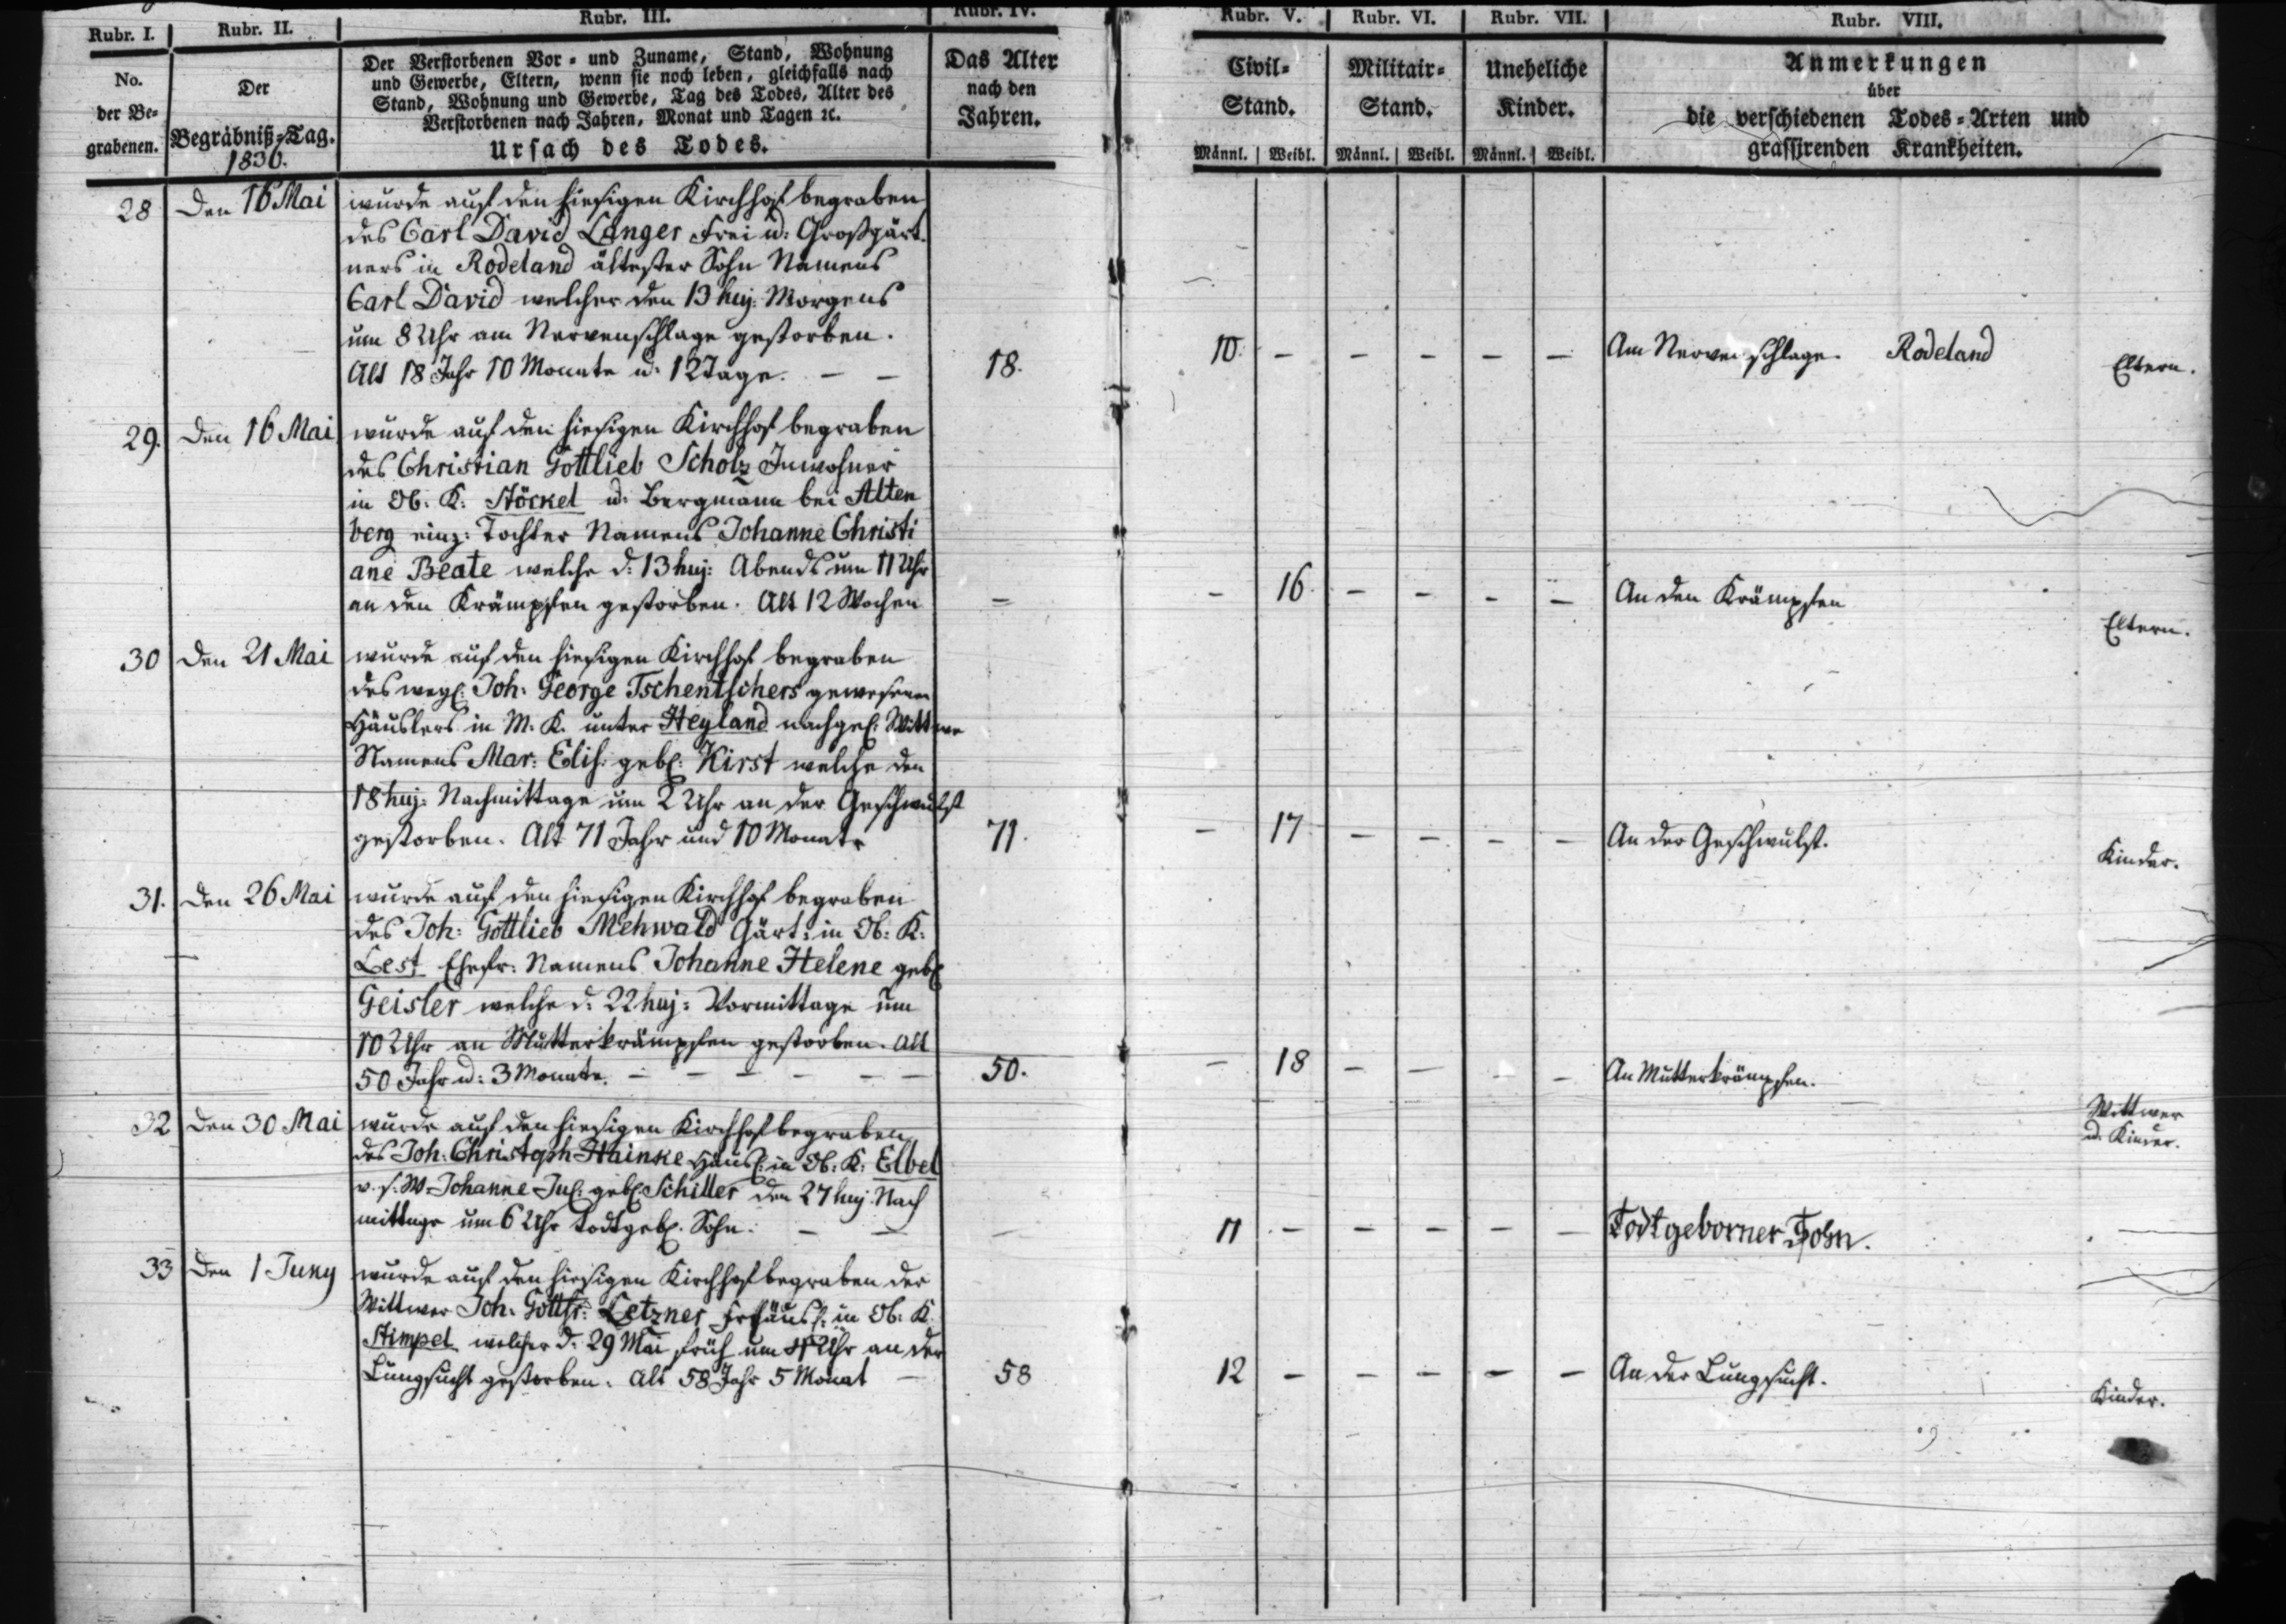 Rubr. I. Rubr. II. Rubr. III. Rubr. IV. Rubr. V. Rubr. VI. Rubr. VII. Rubr. VIII.
No. der Begrabenen.
Der Begräbniß-Tag. 1830.
Der Verstorbenen Vor- und Zuname, Stand, Wohnung
und Gewerbe, Eltern, wenn sie noch leben, gleichfalls nach
Stand, Wohnung und Gewerbe, Tag des Todes, Alter des
Verstorbenen nach Jahren, Monat und Tagen ꝛc.
Ursach des Todes.
Das Alter
nach den
Jahren.
Civil-
Stand.
Männl. Weibl.
Militair-
Stand.
Männl. Weibl.
Uneheliche
Kinder.
Männl. Weibl.
Anmerkungen
über
die verschiedenen Todes-Arten und
grassirenden Krankheiten.
28 Den 16 Mai wurde auf den hiesigen Kirchhof begraben
des Carl David Langer Frei u: Großgärt
ners in Rodeland ältester Sohn Namens
Carl David welcher den 13 huj: Morgens
um 8 Uhr am Nervenschlage gestorben.
Alt 18 Jahr 10 Monate u: 12 Tage. — — 18. 10. — — — — — Am Nervenschlage. Rodeland Eltern.
29. Den 16 Mai wurde auf den hiesigen Kirchhof begraben
des Christian Gottlieb Scholz Inwohner
in Ob: K: Stöckel u: Bergmann bei Alten
berg einz: Tochter Namens Johanne Christi
ane Beate welche d: 13 huj: Abends um 11 Uhr
an den Krämpfen gestorben. Alt 12 Wochen — — 16. — — — — An den Krämpfen Eltern.
30 Den 21 Mai wurde auf den hiesigen Kirchhof begraben
des Joh: George Tschentschers gewesenen
Häuslers in M. K. unter Heyland nachgel: Wittwe
Namens Mar: Elis: geb: Kirst welche den
18 huj: Nachmittage um 2 Uhr an der Geschwulst
gestorben. Alt 71 Jahr und 10 Monate 71. — 17 — — — — An der Geschwulst. Kinder.
31. Den 26 Mai wurde auf den hiesigen Kirchhof begraben
des Joh: Gottlieb Mehwald Gärt: in Ob: K:
Lest Ehefr: Namens Johanne Helene geb:
Geisler welche d: 22 huj: Vormittage um
10 Uhr an Mutterkrämpfen gestorben. Alt
50 Jahr u: 3 Monate. — — — — — — 50. — 18 — — — — An Mutterkrämpfen. Wittwer
u. Kinder.
32 Den 30 Mai wurde auf den hiesigen Kirchhof begraben
des Joh: Christoph Hainke Häusl: in Ob: K: Elbel
v. s. W. Johanne Jul: geb: Schiller den 27 huj: Nach
mittage um 6 Uhr todtgeb: Sohn. — — — 11 — — — — — Todtgeborner Sohn.
33 Den 1 Juny wurde auf den hiesigen Kirchhof begraben der
Wittwer Joh: Gottfr: Letzner Frhäusl: in Ob: K.
Stimpel welcher d: 29 Mai früh um Uhr an der
Lungsucht gestorben. Alt 58 Jahr 5 Monat — 58 12 — — — — — An der Lungsucht. Kinder.